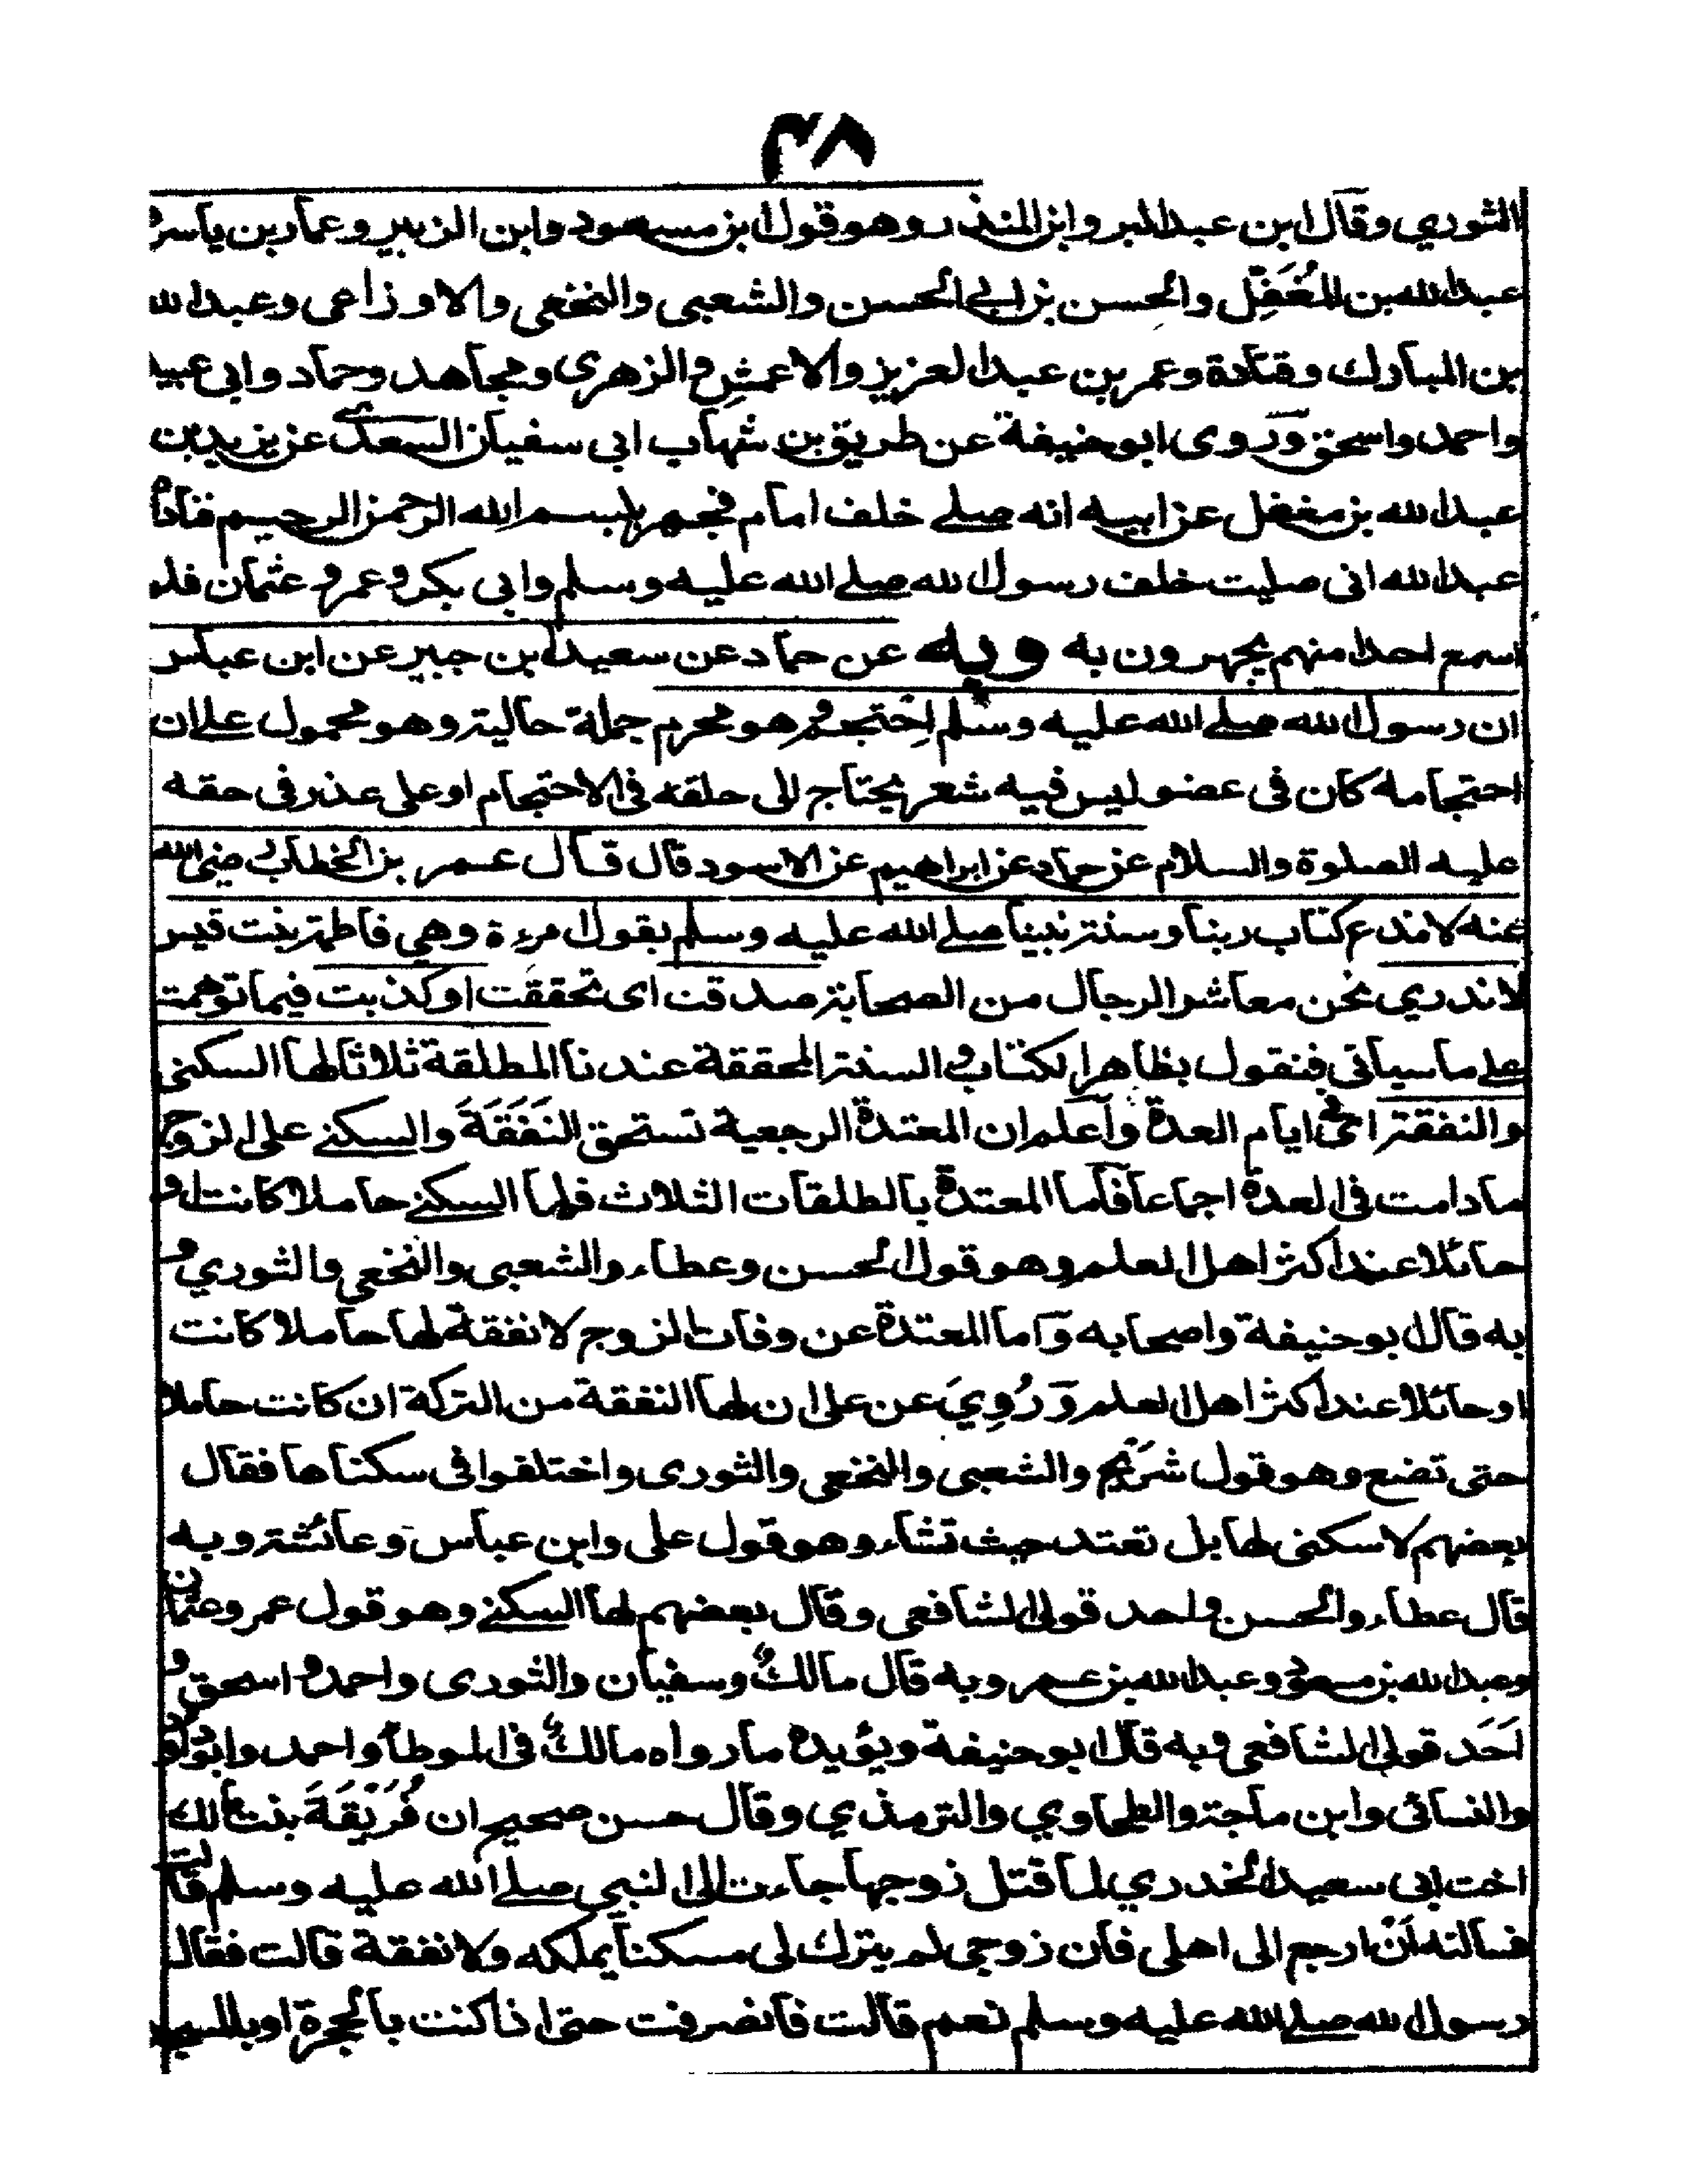 ٣٨
الثوري وقال ابن عبد البر وابن المنذر وهو قول ابن مسعود وابن الزبير وعمار بن ياسر و
عبد الله بن المُغَفِّل والحسن بن ابي الحسن والشعبي والنخعي والاوزاعي وعبد الله
بن المبارك وقتادة وعمر بن عبد العزيز والاعمش والزهري ومجاهد وحماد وابي عبيد
واحمد واسحق وروى ابو حنيفة عن طريق بن شهاب ابي سفيان السعدي عن يزيد بن
عبد الله بن مغفل عن ابيه انه صلى خلف امام فجهر ببسم الله الرحمن الرحيم فناداه
عبد الله اني صليت خلف رسول الله صلى الله عليه وسلم وابي بكر وعمر وعثمان فلم
اسمع احدا منهم يجهرون به وبه عن حماد عن سعيد ابن جبير عن ابن عباس
ان رسول الله صلى الله عليه وسلم اِحْتجم وهو محرم جملة حالية وهو محمول على ان
احتجامه كان في عضو ليس فيه شعر يحتاج الى حلقه في الاحتجام او على عذر في حقه
عليه الصلوة والسلام عن حماد عن ابراهيم عن الاسود قال قال عمر بن الخطاب رضي الله
عنه لا ندع كتاب ربنا وسنة نبينا صلى الله عليه وسلم بقول امرءة وهي فاطمة بنت قيس
لا ندري نحن معاشر الرجال من الصحابة صدقت اى تحققت او كذبت فيما توهمت
على ما سياتي فنقول بظاهر الكتاب و السنة المحققة عندنا المطلقة ثلاثا لها السكنى
والنفقة اى في ايام العدة واعلم ان المعتدة الرجعية تستحق النَفَقَةَ والسكنى على الزوج
ما دامت في العدة اجماعا فاما المعتدة بالطلقات الثلاث فلها السكنى حاملا كانت او
حائلا عند اكثر اهل العلم وهو قول الحسن وعطاء والشعبي والنخعي والثوري و
به قال ابو حنيفة واصحابه واما المعتدة عن وفات الزوج لا نفقة لها حاملا كانت
او حائلا عند اكثر اهل العلم وَرُوِيَ عن على ان لها النفقة من التركة ان كانت حاملا
حتى تضع وهو قول شريح والشعبي والنخعي والثورى واختلفوا في سكناها فقال
بعضهم لا سكنى لها بل تعتد حيث تشاء وهو قول على وابن عباس وعائشة وبه
قال عطاء والحسن واحد قولي الشافعي وقال بعضهم لها السكنى وهو قول عمر وعثمان
وعبد الله بن مسعود وعبد الله بن عمر وبه قال مالكٌ وسفيان والثورى واحمد واسحق و
اَحَد قولي الشافعي وبه قال ابو حنيفة ويؤيده ما رواه مالكٌ في الموطأ واحمد وابو داود
والنسائي وابن ماجة والطحاوي والترمذي وقال حسن صحيح ان فُرَيْقَةَ بنت مالك
اخت ابي سعيد الخدري لما قتل زوجها جاءت الى النبي صلى الله عليه وسلم قالت
فسالته اَنْ ارجع الى اهلى فان زوجي لم يترك لى مسكنا يملكه ولا نفقة قالت فقال
رسول الله صلى الله عليه وسلم نعم قالت فانصرفت حتى اذا كنت بالحجرة او بالمسجد